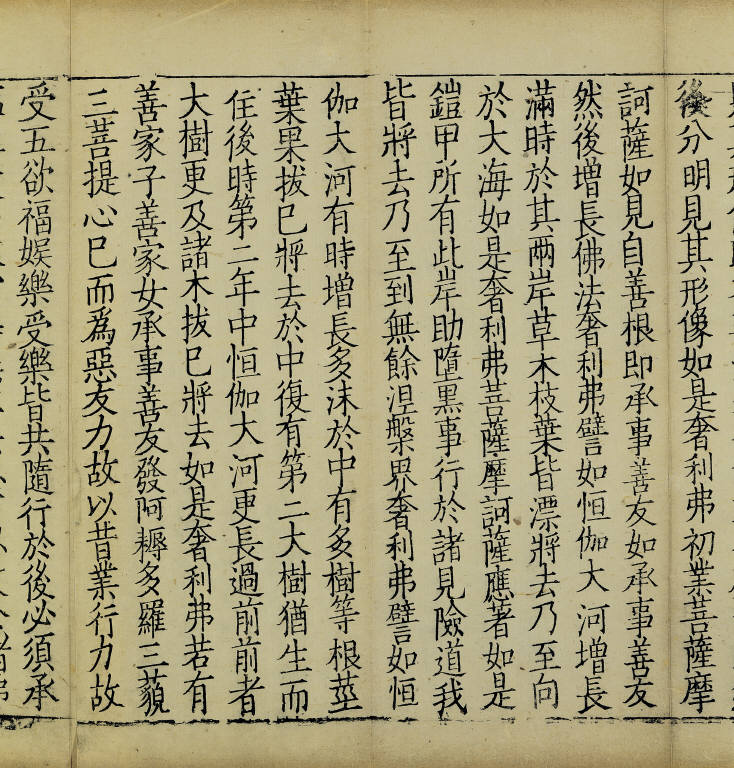 後分明見其形像如是奢利弗初業菩薩摩
訶薩如見自善根即承事善友如承事善友
然後增長佛法奢利弗譬如恒伽大河增長
滿時於其兩岸草木枝葉皆漂將去乃至向
於大海如是奢利弗菩薩摩訶薩應著如是
鎧甲所有此岸助墮黑事行於諸見險道我
皆將去乃至到無餘涅槃界奢利弗譬如恒
伽大河有時增長多沫於中有多樹等根莖
葉果拔已將去於中復有第二大樹猶生而
住後時第二年中恒伽大河更長過前前者
大樹更及諸木拔已將去如是奢利弗若有
善家子善家女承事善友發阿耨多羅三藐
三菩提心已而爲惡友力故以昔業行力故
受五欲福娛樂受樂皆共隨行於後必須承